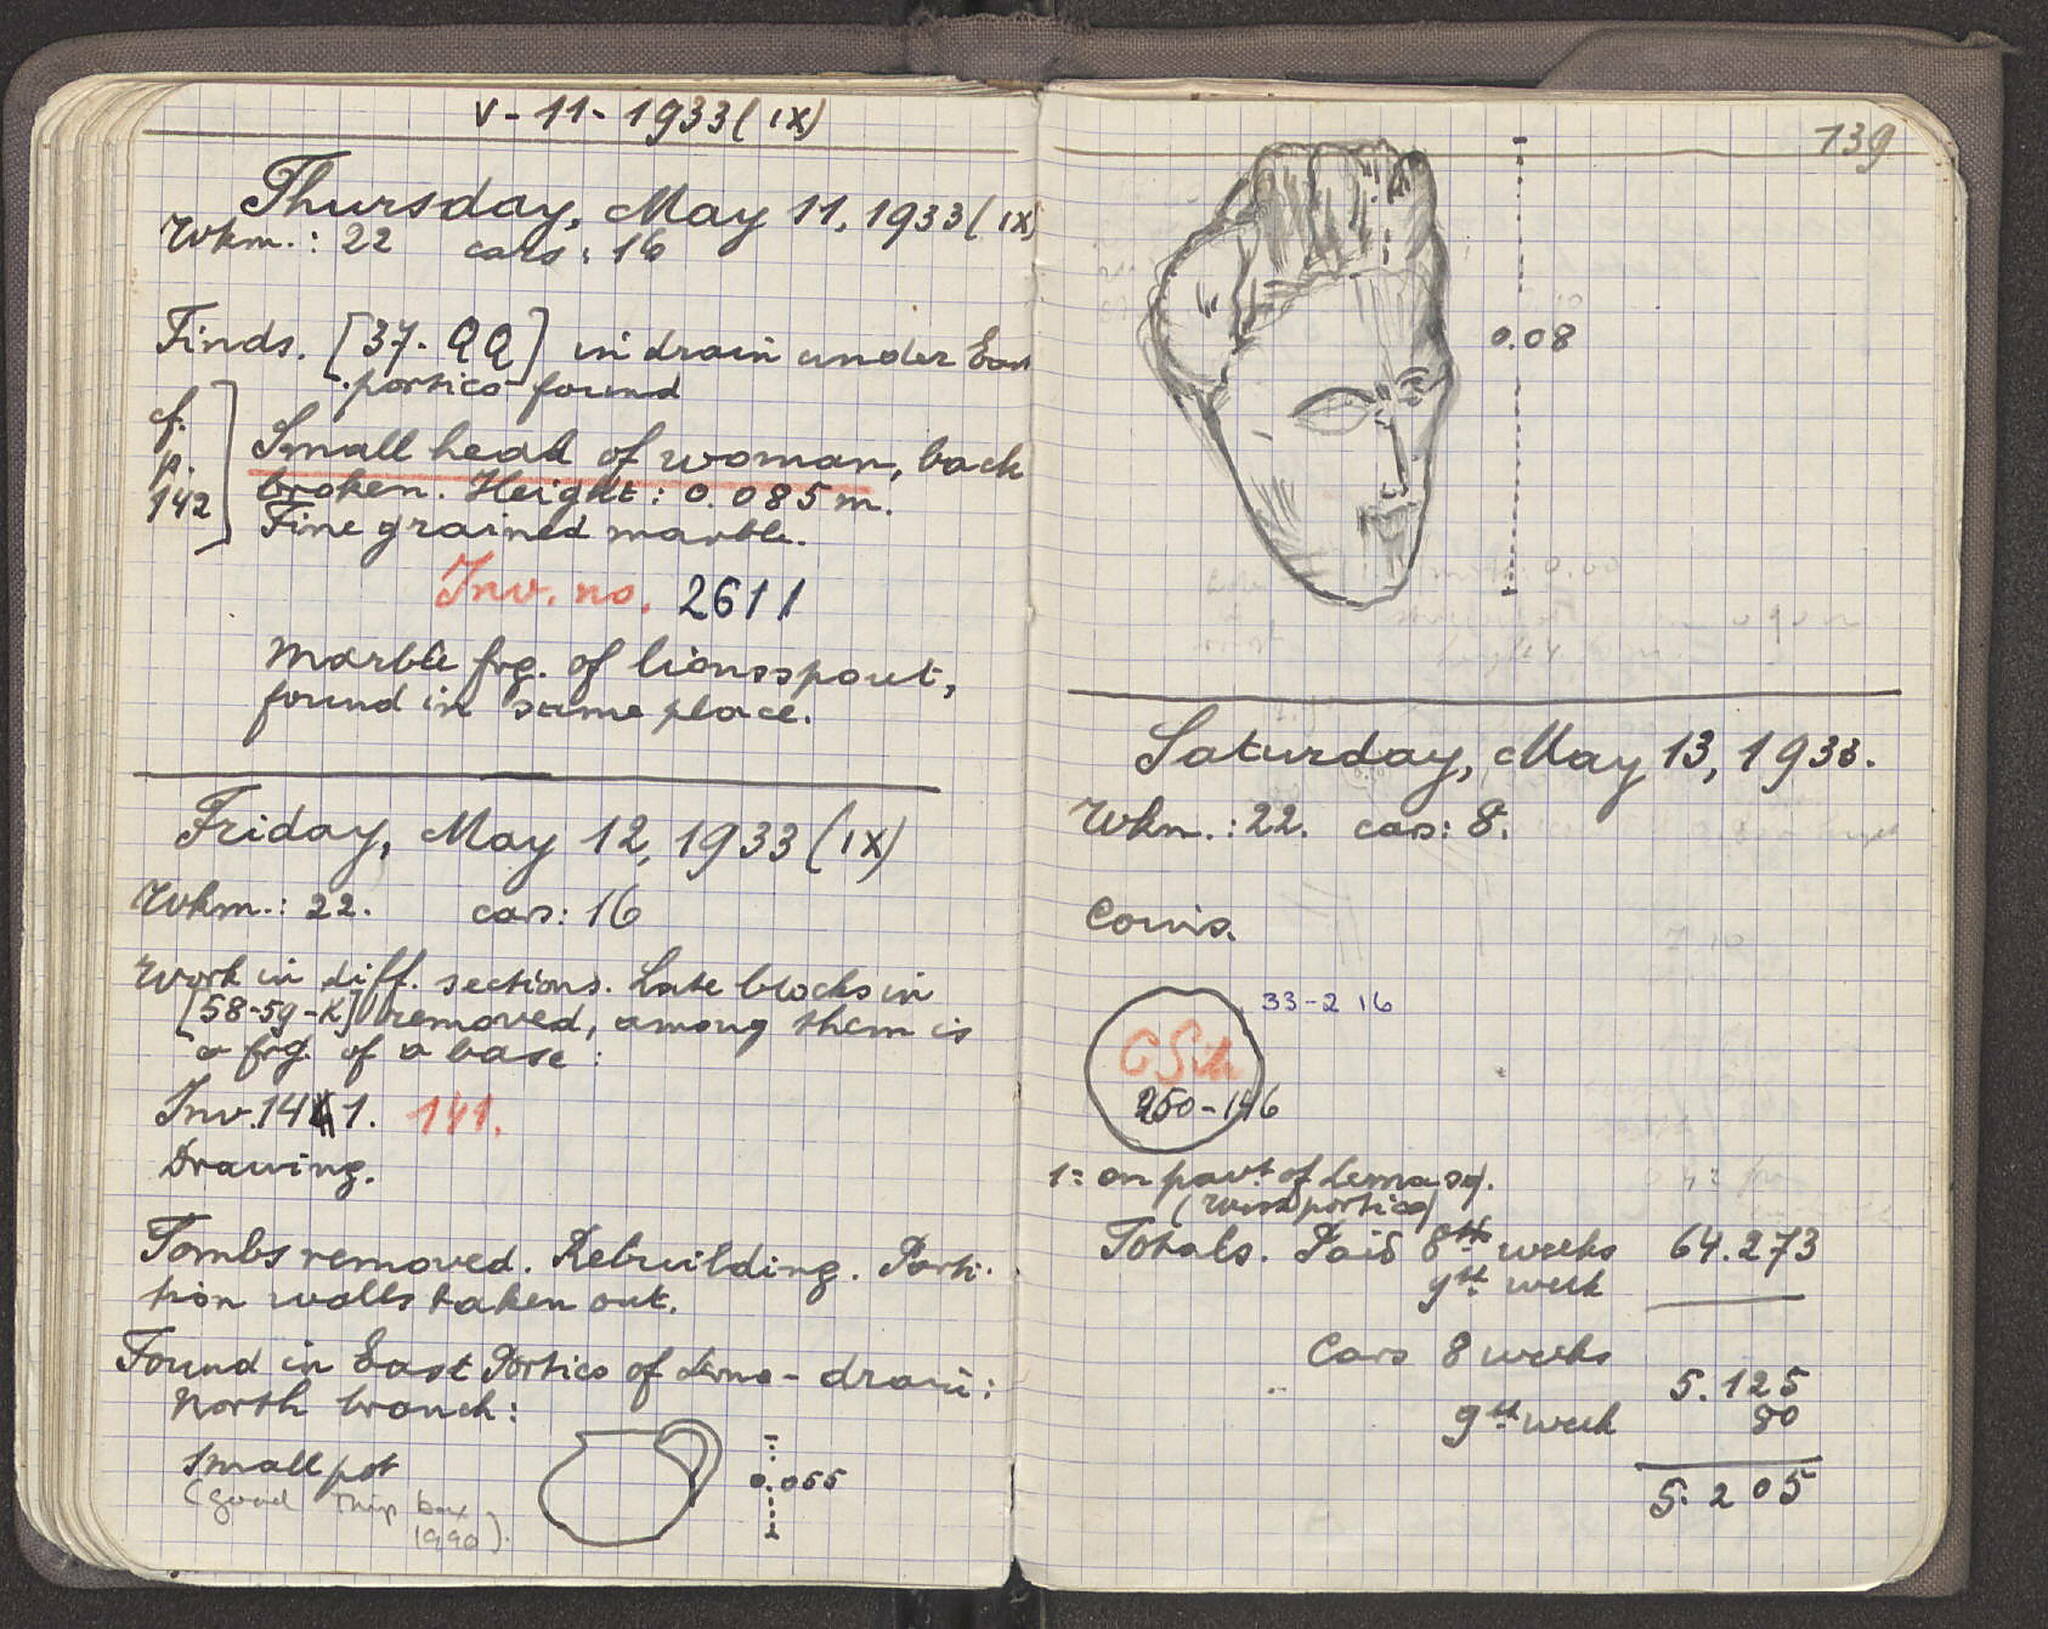 V - 11 - 1933 (IX)
Thursday, May 11, 1933 (IX)
Wkm.: 22 cars: 16
Finds. [37-QQ] in drain under East
portico found
cf.
p.
142
Small head of woman, back
broken. Height: 0.085 m.
Fine grained marble.
Inv. no. 2611
Marble frg. of lionsspout,
found in same place.
Friday, May 12, 1933 (IX)
Wkm.: 22. cars: 16
Work in diff. sections. Late blocks in
[58-59-K] removed, among them is
a frg. of a base:
Inv. 1441. 141.
Drawing.
Tombs removed. Rebuilding. Parti-
tion walls taken out.
Found in East Portico of Lerna - drain:
North branch:
Small pot
(good
box
1990).
0.055
139
0.08
Saturday, May 13, 1933.
Wkm.: 22. cars: 8.
Coins.
33-216
250-146
1 = on pavt. of Lerna sq.
(West portico)
Totals. Paid 8th weeks 64.273
9th week
Cars 8 weeks
5.125
9th week 80
5.205